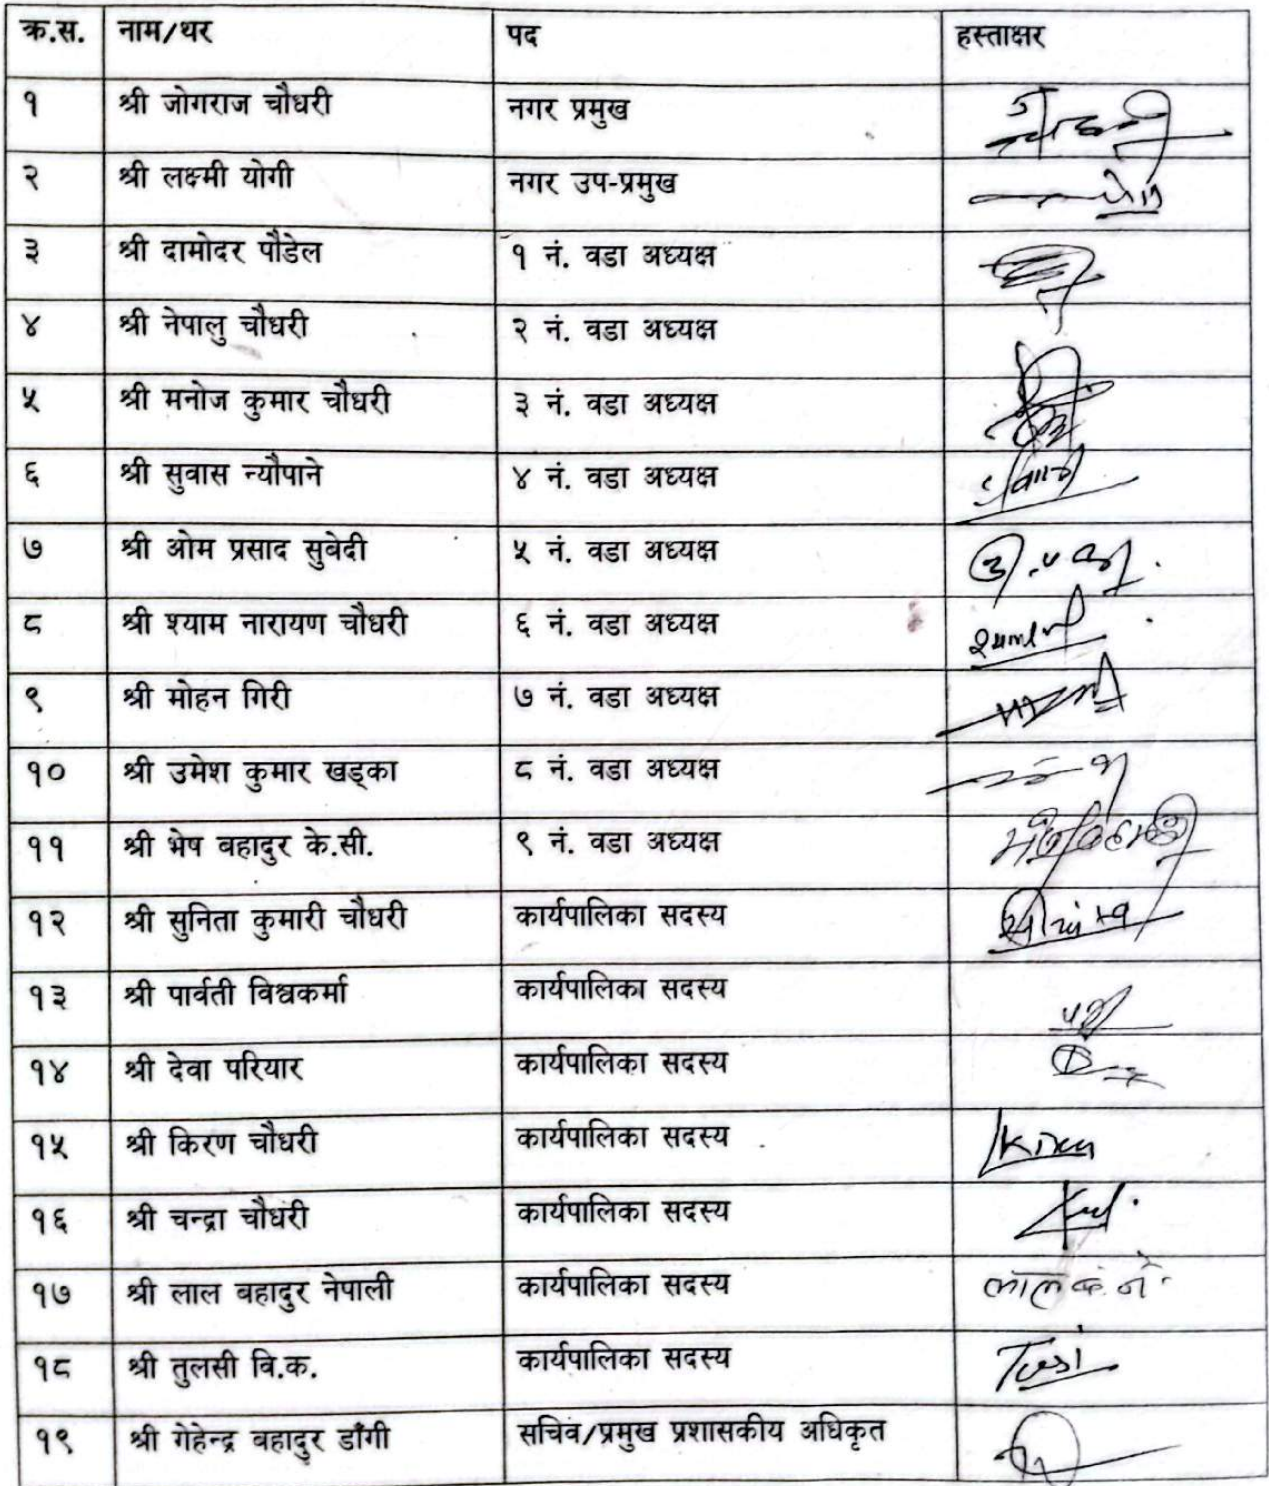 क्र.स. नाम/थर पद हस्ताक्षर
१ श्री जोगराज चौधरी नगर प्रमुख
२ श्री लक्ष्मी योगी नगर उप-प्रमुख
३ श्री दामोदर पौडेल १ नं. वडा अध्यक्ष
४ श्री नेपालु चौधरी २ नं. वडा अध्यक्ष
५ श्री मनोज कुमार चौधरी ३ नं. वडा अध्यक्ष
६ श्री सुवास न्यौपाने ४ नं. वडा अध्यक्ष
७ श्री ओम प्रसाद सुबेदी ५ नं. वडा अध्यक्ष
८ श्री श्याम नारायण चौधरी ६ नं. वडा अध्यक्ष
९ श्री मोहन गिरी ७ नं. वडा अध्यक्ष
१० श्री उमेश कुमार खड्का ८ नं. वडा अध्यक्ष
११ श्री भेष बहादुर के.सी. ९ नं. वडा अध्यक्ष
१२ श्री सुनिता कुमारी चौधरी कार्यपालिका सदस्य
१३ श्री पार्वती विश्वकर्मा कार्यपालिका सदस्य
१४ श्री देवा परियार कार्यपालिका सदस्य
१५ श्री किरण चौधरी कार्यपालिका सदस्य
१६ श्री चन्द्रा चौधरी कार्यपालिका सदस्य
१७ श्री लाल बहादुर नेपाली कार्यपालिका सदस्य
१८ श्री तुलसी वि.क. कार्यपालिका सदस्य
१९ श्री गेहेन्द्र बहादुर डाँगी सचिव/प्रमुख प्रशासकीय अधिकृत